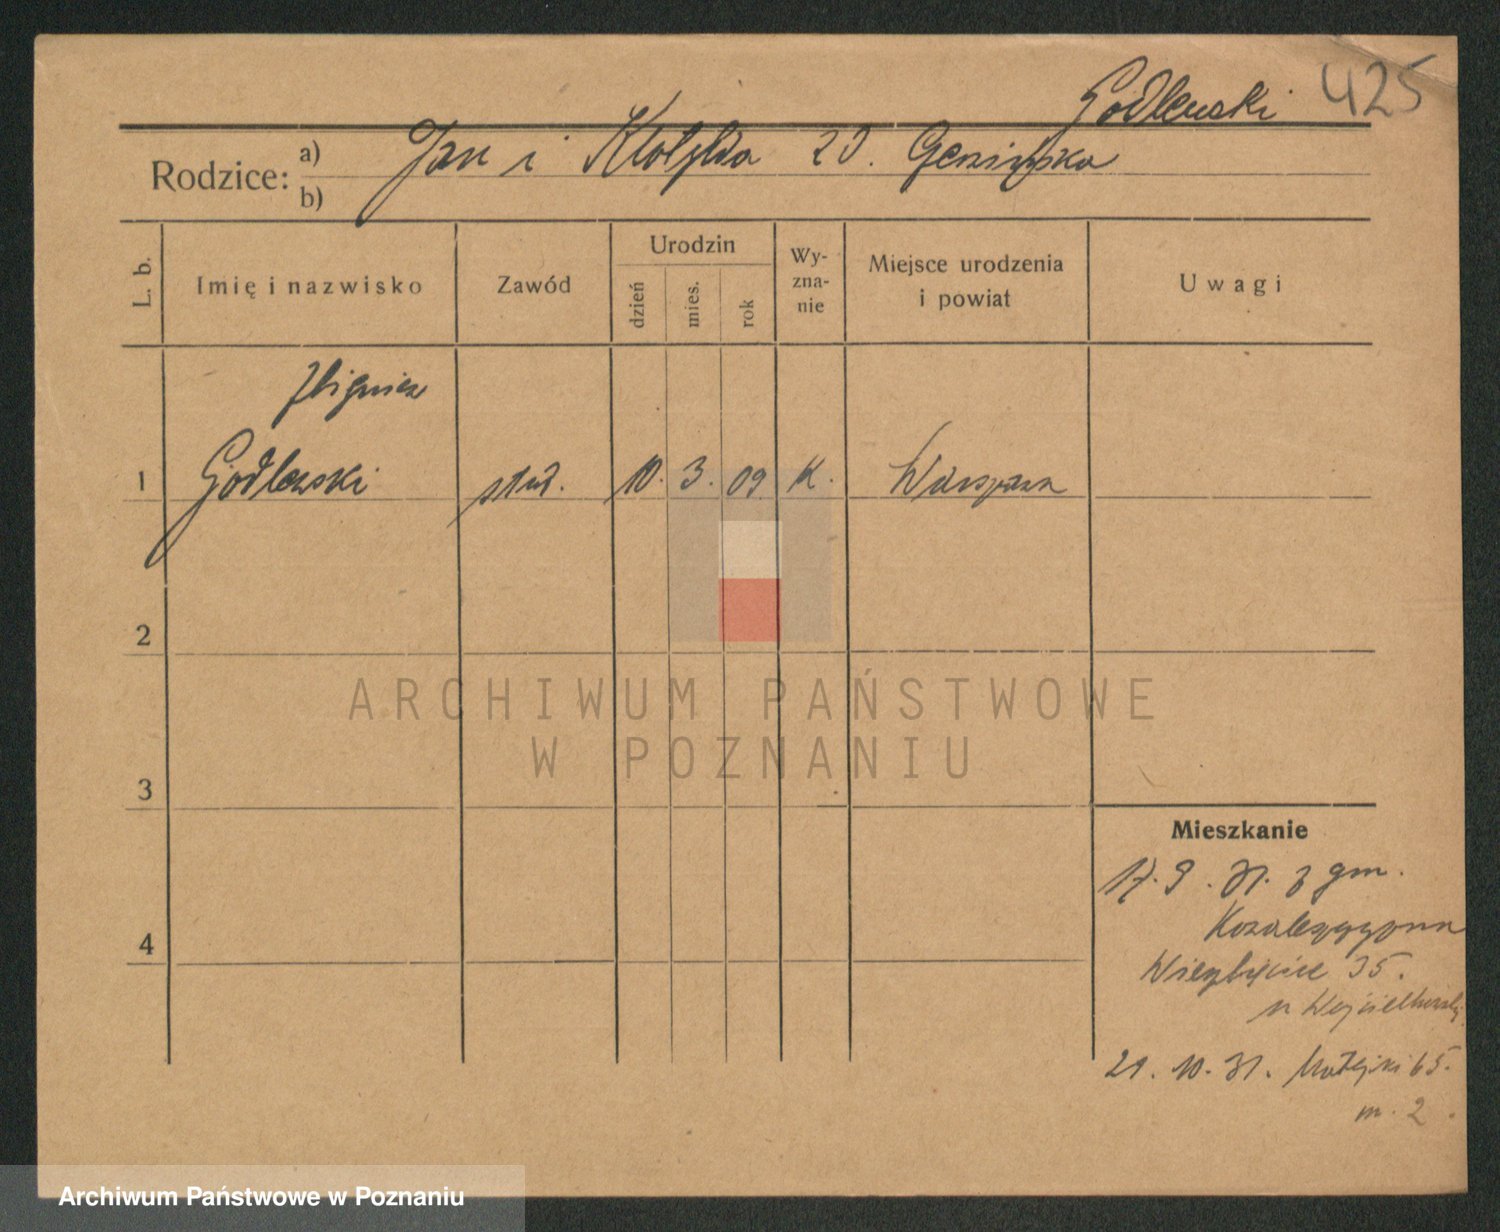 Godlewski 425
Rodzice: a) Jan i Klotylda zd.
b)
L. b.
Imię i nazwisko
Zawód
Urodzin
dzień
mies.
rok
Wy-
zna-
nie
Miejsce urodzenia
i powiat
Uwagi
Zbigniew
1 Godlewski stud. 10. 3. 09 K. Warszawa
2
3
4
ARCHIWUM PAŃSTWOWE
W POZNANIU
Mieszkanie
17. 9. 31. z gm.
Wierzbięcice 35.
21. 10. 31. Matejki 65.
m. 2.
Archiwum Państwowe w Poznaniu